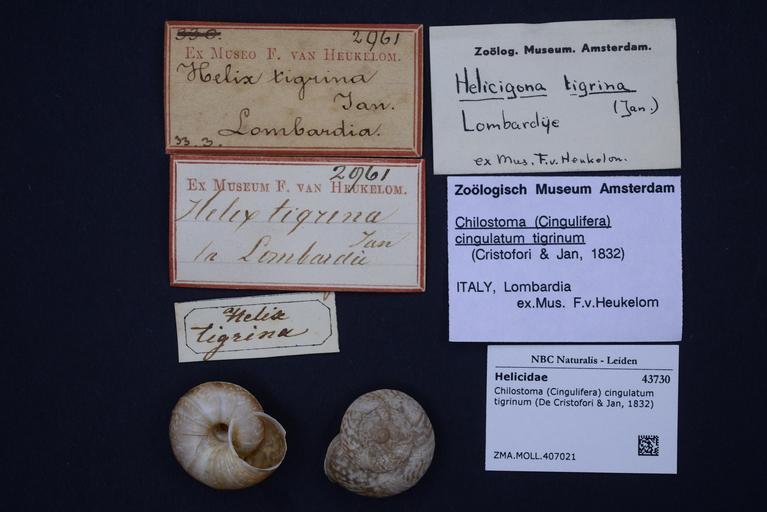 330.
2961
Ex Museo F. van Heukelom.
Helix tigrina
Jan.
Lombardia.
33.3.
2961
Ex Museum F. van Heukelom.
Helix tigrina
Jan
la Lombardie
Helix
tigrina
Zoölog. Museum. Amsterdam.
Helicigona tigrina
(Jan.)
Lombardije
ex Mus. F.v.Heukelom.
Zoölogisch Museum Amsterdam
Chilostoma (Cingulifera)
cingulatum tigrinum
(Cristofori & Jan, 1832)
ITALY, Lombardia
ex.Mus. F.v.Heukelom
NBC Naturalis - Leiden
Helicidae 43730
Chilostoma (Cingulifera) cingulatum
tigrinum (De Cristofori & Jan, 1832)
ZMA.MOLL.407021